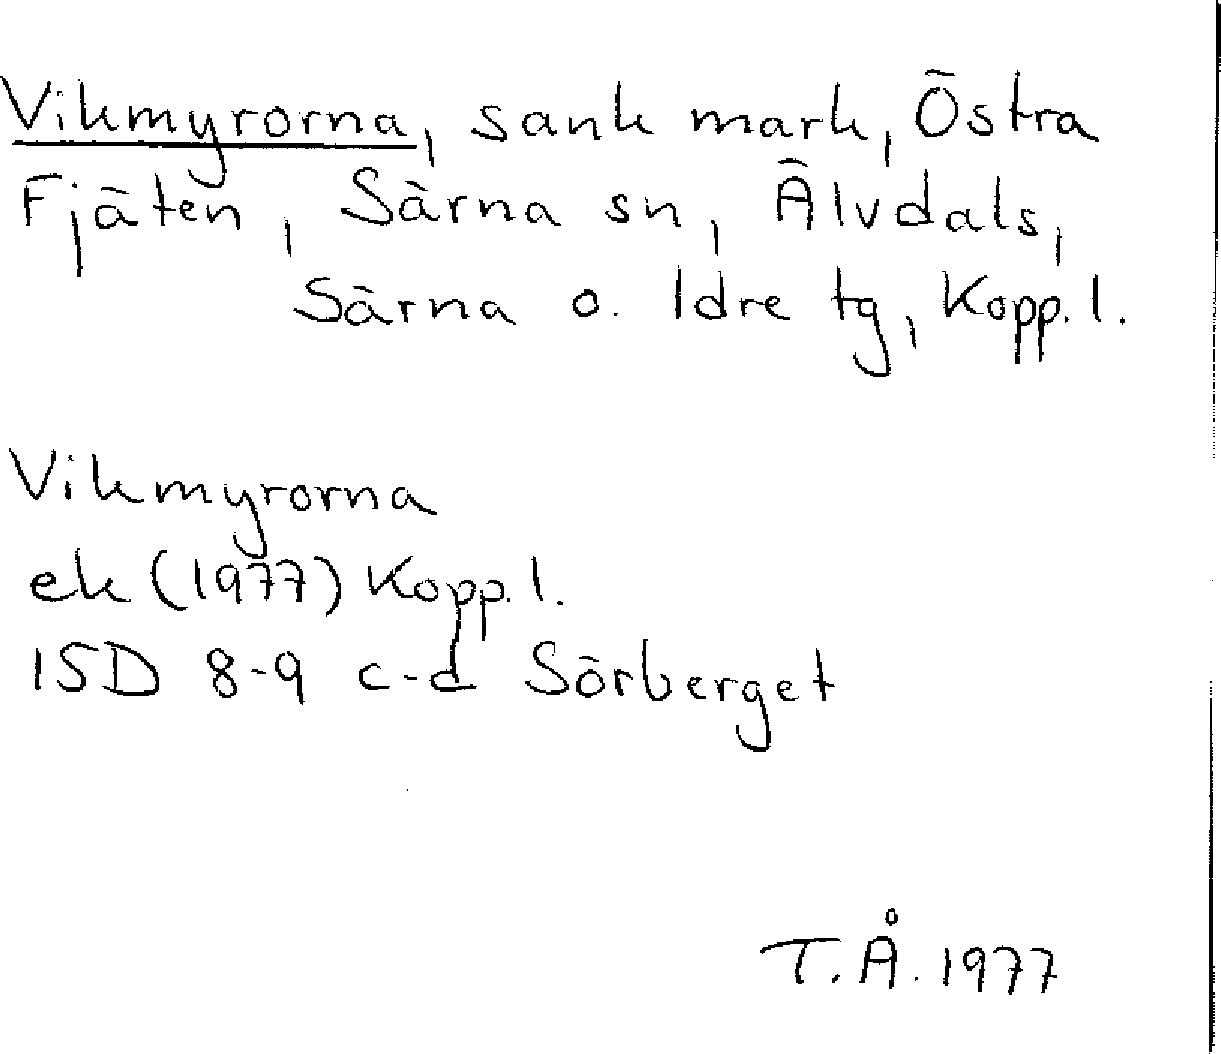 Vikmyrorna, sank mark, Östra
Fjäten, Särna sn, Älvdals,
Särna o. Idre tg, Kopp. l.
Vikmyrorna
ek (1977) Kopp. l.
15D 8-9 c-d Sörberget
T.Å. 1977